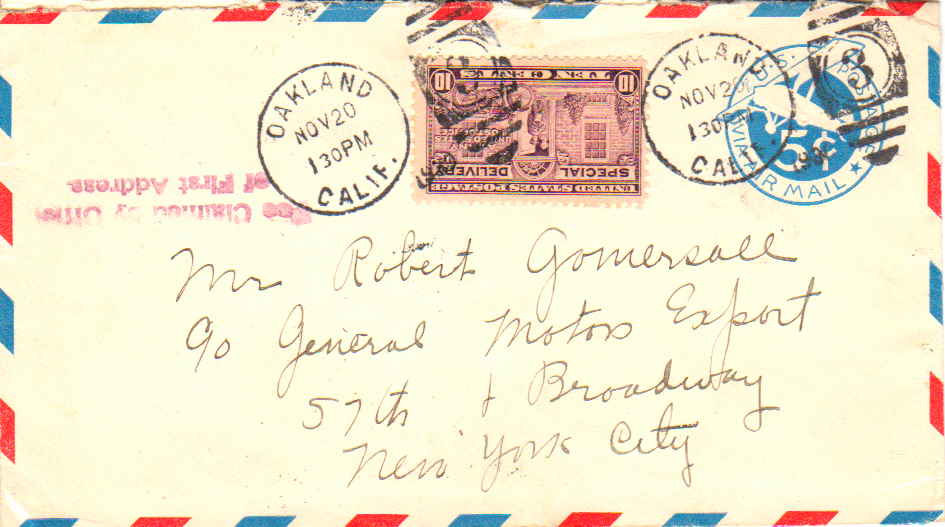 OAKLAND
NOV 20
1 30 PM
CALIF.
10 TEN CENTS 10
SPECIAL DELIVERY
UNITED STATES POSTAGE
OAKLAND
NOV 20
1 30 PM
CALIF.
U.S. POSTAGE
5¢
VIA AIR MAIL
Fee Claimed by Office
of First Address.
Mr Robert Gomersall
c/o General Motors Export
57th & Broadway
New York City